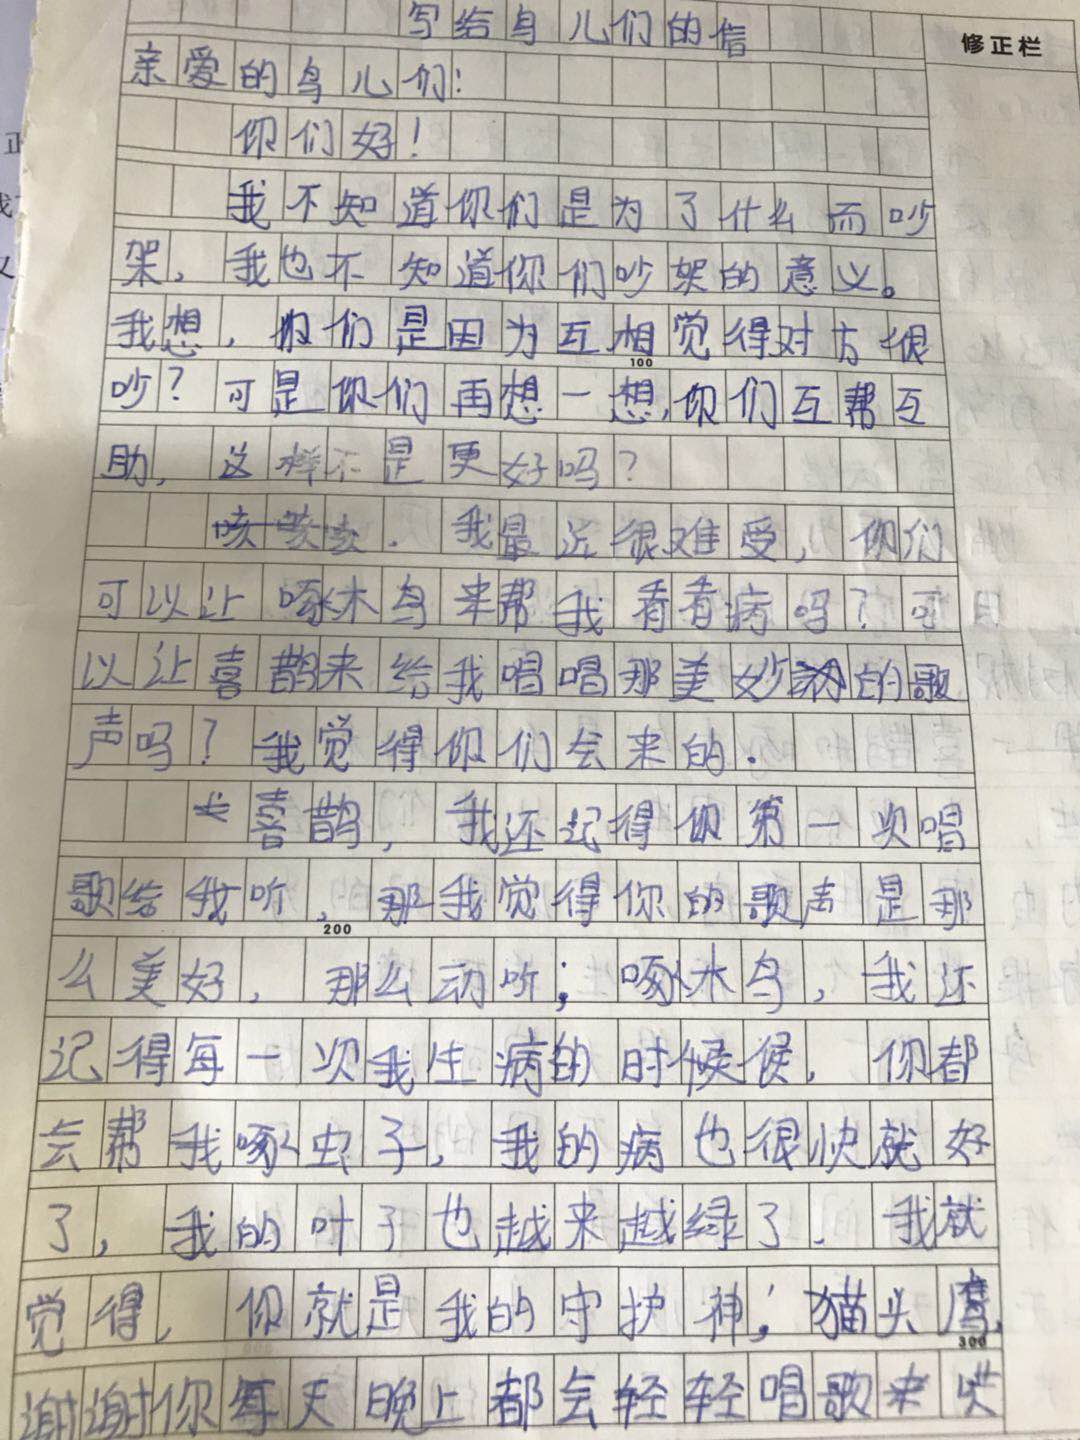 写给鸟儿们的信
修正栏
亲爱的鸟儿们:
你们好!
我不知道你们是为了什么而吵
架,我也不知道你们吵架的意义。
我想,你们是因为互相觉得对方很
100
吵?可是你们再想一想,你们互帮互
助,这样不是更好吗?
咳咳咳.我最近很难受,你们
可以让啄木鸟来帮我看看病吗?可
以让喜鹊来给我唱唱那美妙的歌
声吗?我觉得你们会来的.
喜鹊,我还记得你第一次唱
歌给我听,那我觉得你的歌声是那
200
么美好,那么动听;啄木鸟,我还
记得每一次我生病的时候候,你都
会帮我啄虫子,我的病也很快就好
了,我的叶子也越来越绿了.我就
觉得,你就是我的守护神;猫头鹰,
300
谢谢你每天晚上都会轻轻唱歌来哄